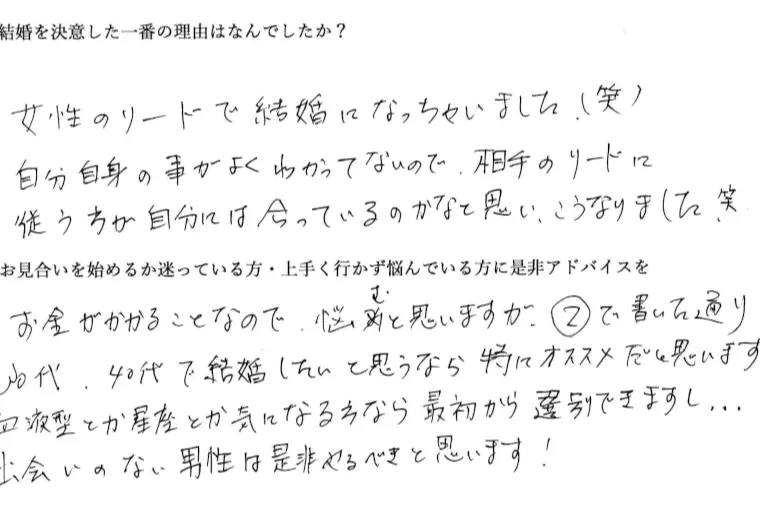 結婚を決意した一番の理由はなんでしたか？
女性のリードで結婚になっちゃいました（笑）
自分自身の事がよくわかってないので、相手のリードに
従う方が自分には合っているのかなと思い、こうなりました笑
お見合いを始めるか迷っている方・上手く行かず悩んでいる方に是非アドバイスを
お金がかかることなので、悩むと思いますが、②で書いた通り
30代、40代で結婚したいと思うなら特にオススメだと思います
血液型とか星座とか気になる方なら最初から選別できますし...
出会いのない男性は是非やるべきと思います！